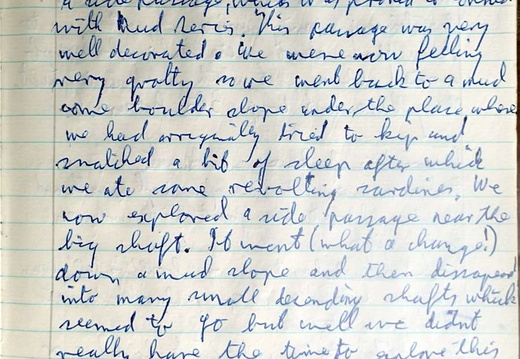 a side passage, which
with Mud Xeric. This passage was very
well decorated. We were now feeling
very grotty so we went back to a mud
come boulder slope under the place where
we had orrigually tried to kip and
snatched a bit of sleep after which
we ate some revolting sardines. We
now explored a side passage near the
big shaft. It went (what a change!)
down a mud slope and then dissapeard
into many small decending shafts which
seemed to go but well we didnt
really have the time to explore this